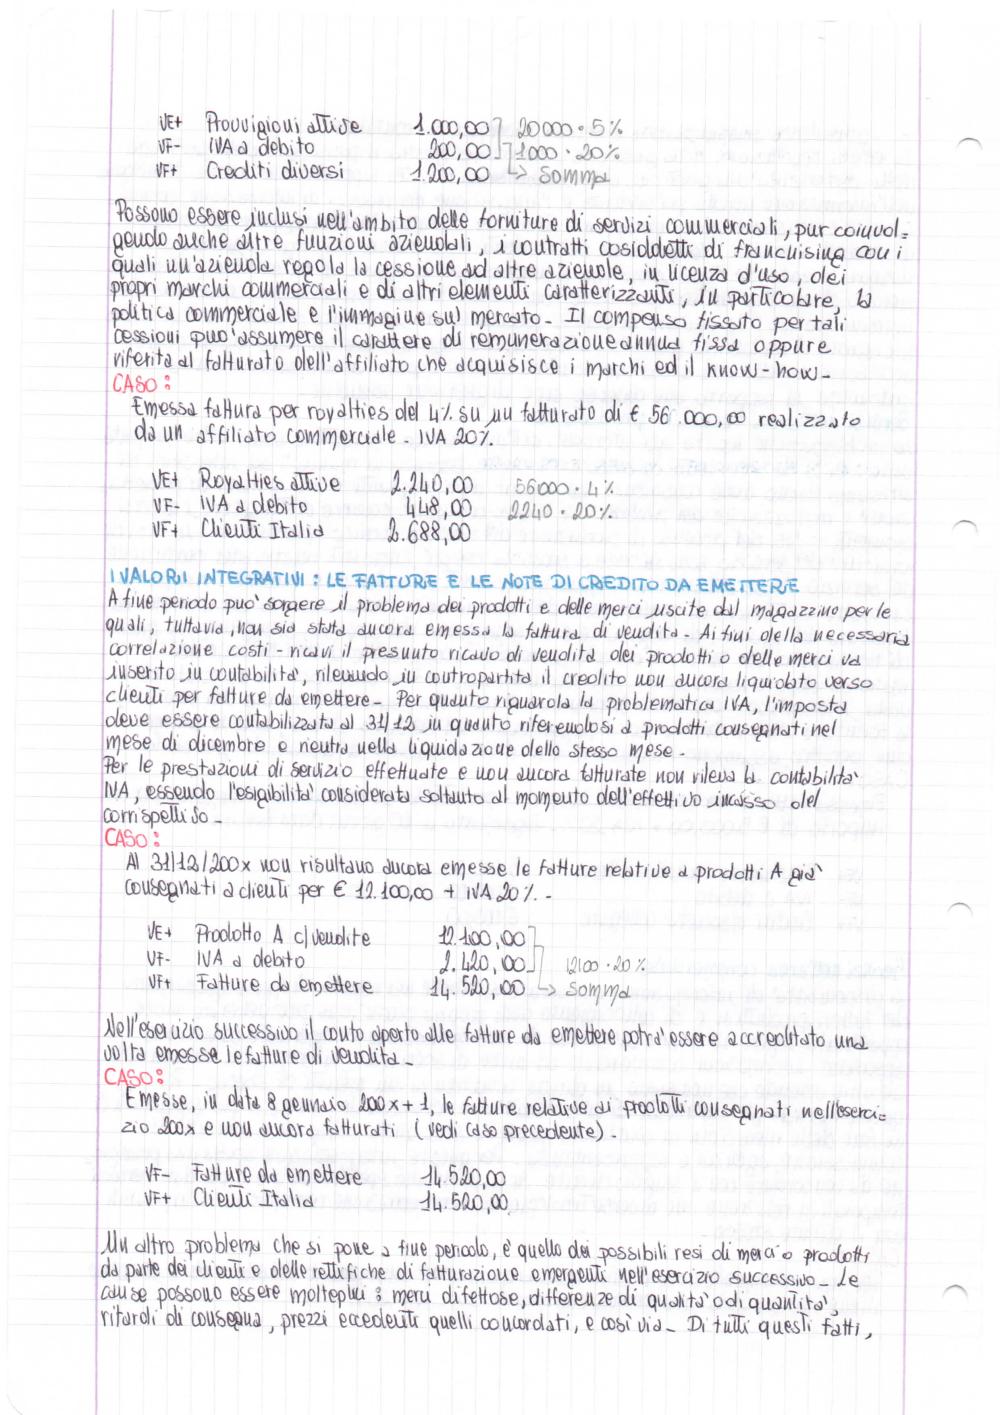 VE+ Provvigioni attive 1.000,00 20000·5%
VF- IVA a debito 200,00 1000·20%
VF+ Crediti diversi 1.200,00 → Somma
Possono essere inclusi nell'ambito delle forniture di servizi commerciali, pur coinvol=
gendo anche altre funzioni aziendali, i contratti cosiddetti di franchising con i
quali un'azienda regola la cessione ad altre aziende, in licenza d'uso, dei
propri marchi commerciali e di altri elementi caratterizzanti, in particolare, la
politica commerciale e l'immagine sul mercato. Il compenso fissato per tali
cessioni puo' assumere il carattere di remunerazione annua fissa oppure
riferita al fatturato dell'affiliato che acquisisce i marchi ed il know-how.
CASO:
Emessa fattura per royalties del 4% su un fatturato di € 56.000,00 realizzato
da un affiliato commerciale. IVA 20%.
VE+ Royalties attive 2.240,00 56000·4%
VF- IVA a debito 448,00 2240·20%
VF+ Clienti Italia 2.688,00
I VALORI INTEGRATIVI: LE FATTURE E LE NOTE DI CREDITO DA EMETTERE
A fine periodo puo' sorgere il problema dei prodotti e delle merci uscite dal magazzino per le
quali, tuttavia, non sia stata ancora emessa la fattura di vendita. Ai fini della necessaria
correlazione costi-ricavi il presunto ricavo di vendita dei prodotti o delle merci va
inserito in contabilita', rilevando in contropartita il credito non ancora liquidato verso
clienti per fatture da emettere. Per quanto riguarda la problematica IVA, l'imposta
deve essere contabilizzata al 31/12 in quanto riferendosi a prodotti consegnati nel
mese di dicembre e rientra nella liquidazione dello stesso mese.
Per le prestazioni di servizio effettuate e non ancora fatturate non rileva la contabilita'
IVA, essendo l'esigibilita' considerata soltanto al momento dell'effettivo incasso del
corrispettivo.
CASO:
Al 31/12/200x non risultano ancora emesse le fatture relative a prodotti A gia'
consegnati a clienti per € 12.100,00 + IVA 20%.-
VE+ Prodotto A c/vendite 12.100,00
VF- IVA a debito 2.420,00 12100·20%
VF+ Fatture da emettere 14.520,00 → Somma
Nell'esercizio successivo il conto aperto alle fatture da emettere potra' essere accreditato una
volta emesse le fatture di vendita.
CASO:
Emesse, in data 8 gennaio 200x+1, le fatture relative ai prodotti consegnati nell'eserci=
zio 200x e non ancora fatturati (vedi caso precedente).
VF- Fatture da emettere 14.520,00
VF+ Clienti Italia 14.520,00
Un altro problema che si pone a fine periodo, e' quello dei possibili resi di merci o prodotti
da parte dei clienti e delle rettifiche di fatturazione emergenti nell'esercizio successivo. Le
cause possono essere molteplici: merci difettose, differenze di qualita' o di quantita',
ritardi di consegna, prezzi eccedenti quelli concordati, e cosi via. Di tutti questi fatti,